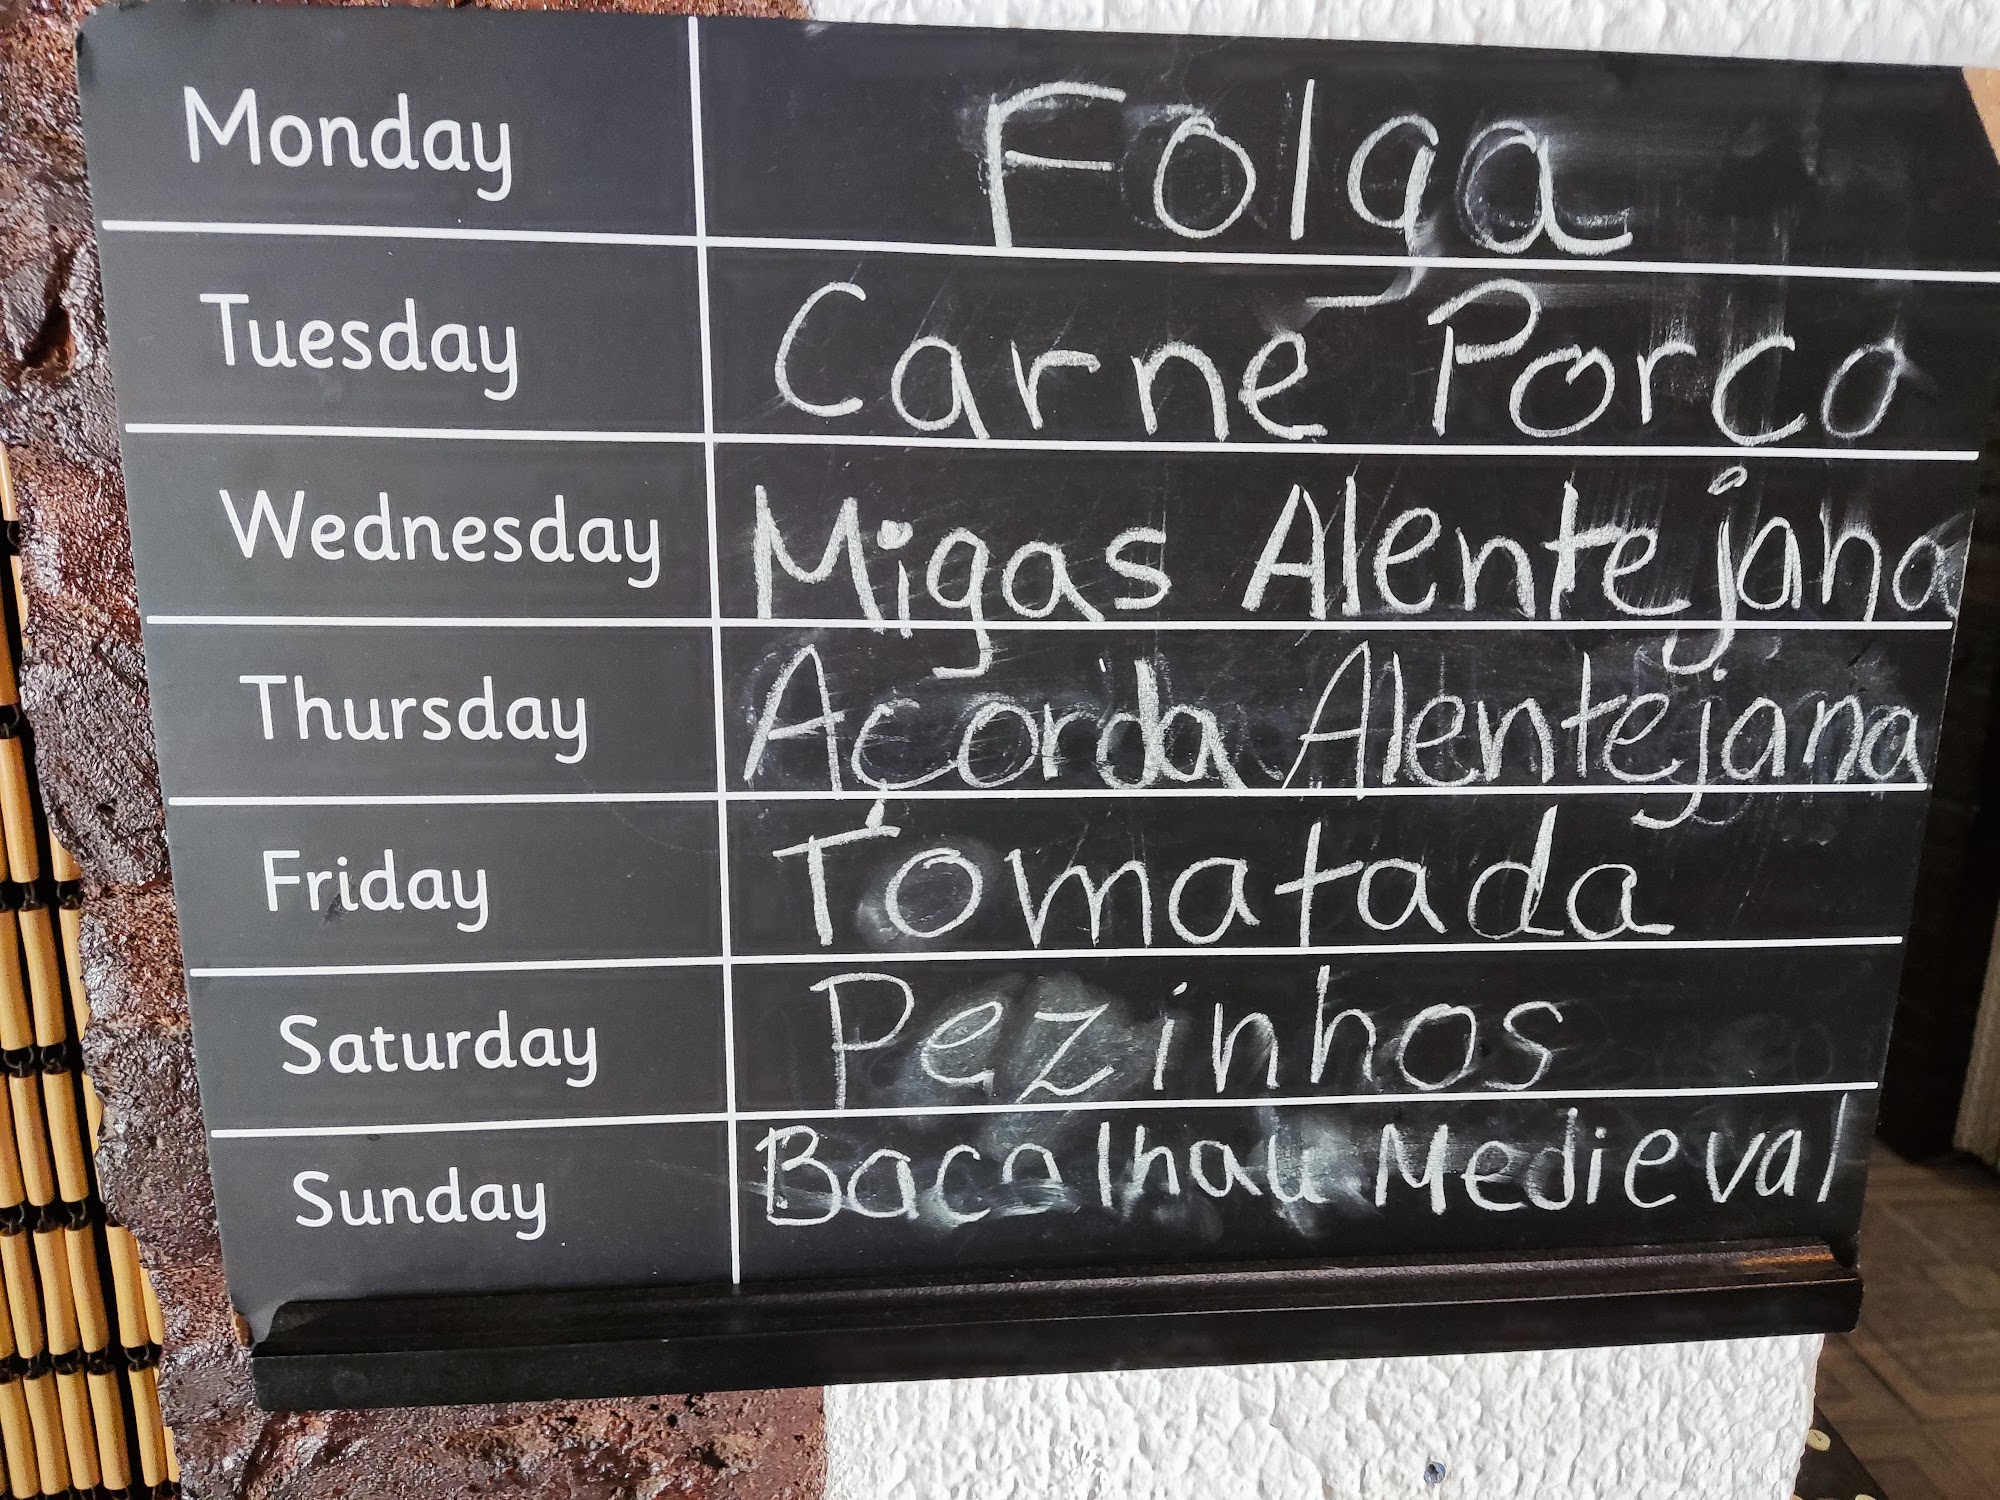 Monday Folga
Tuesday Carne Porco
Wednesday Migas Alentejana
Thursday Açorda Alentejana
Friday Tomatada
Saturday Pezinhos
Sunday Bacalhau Medieval